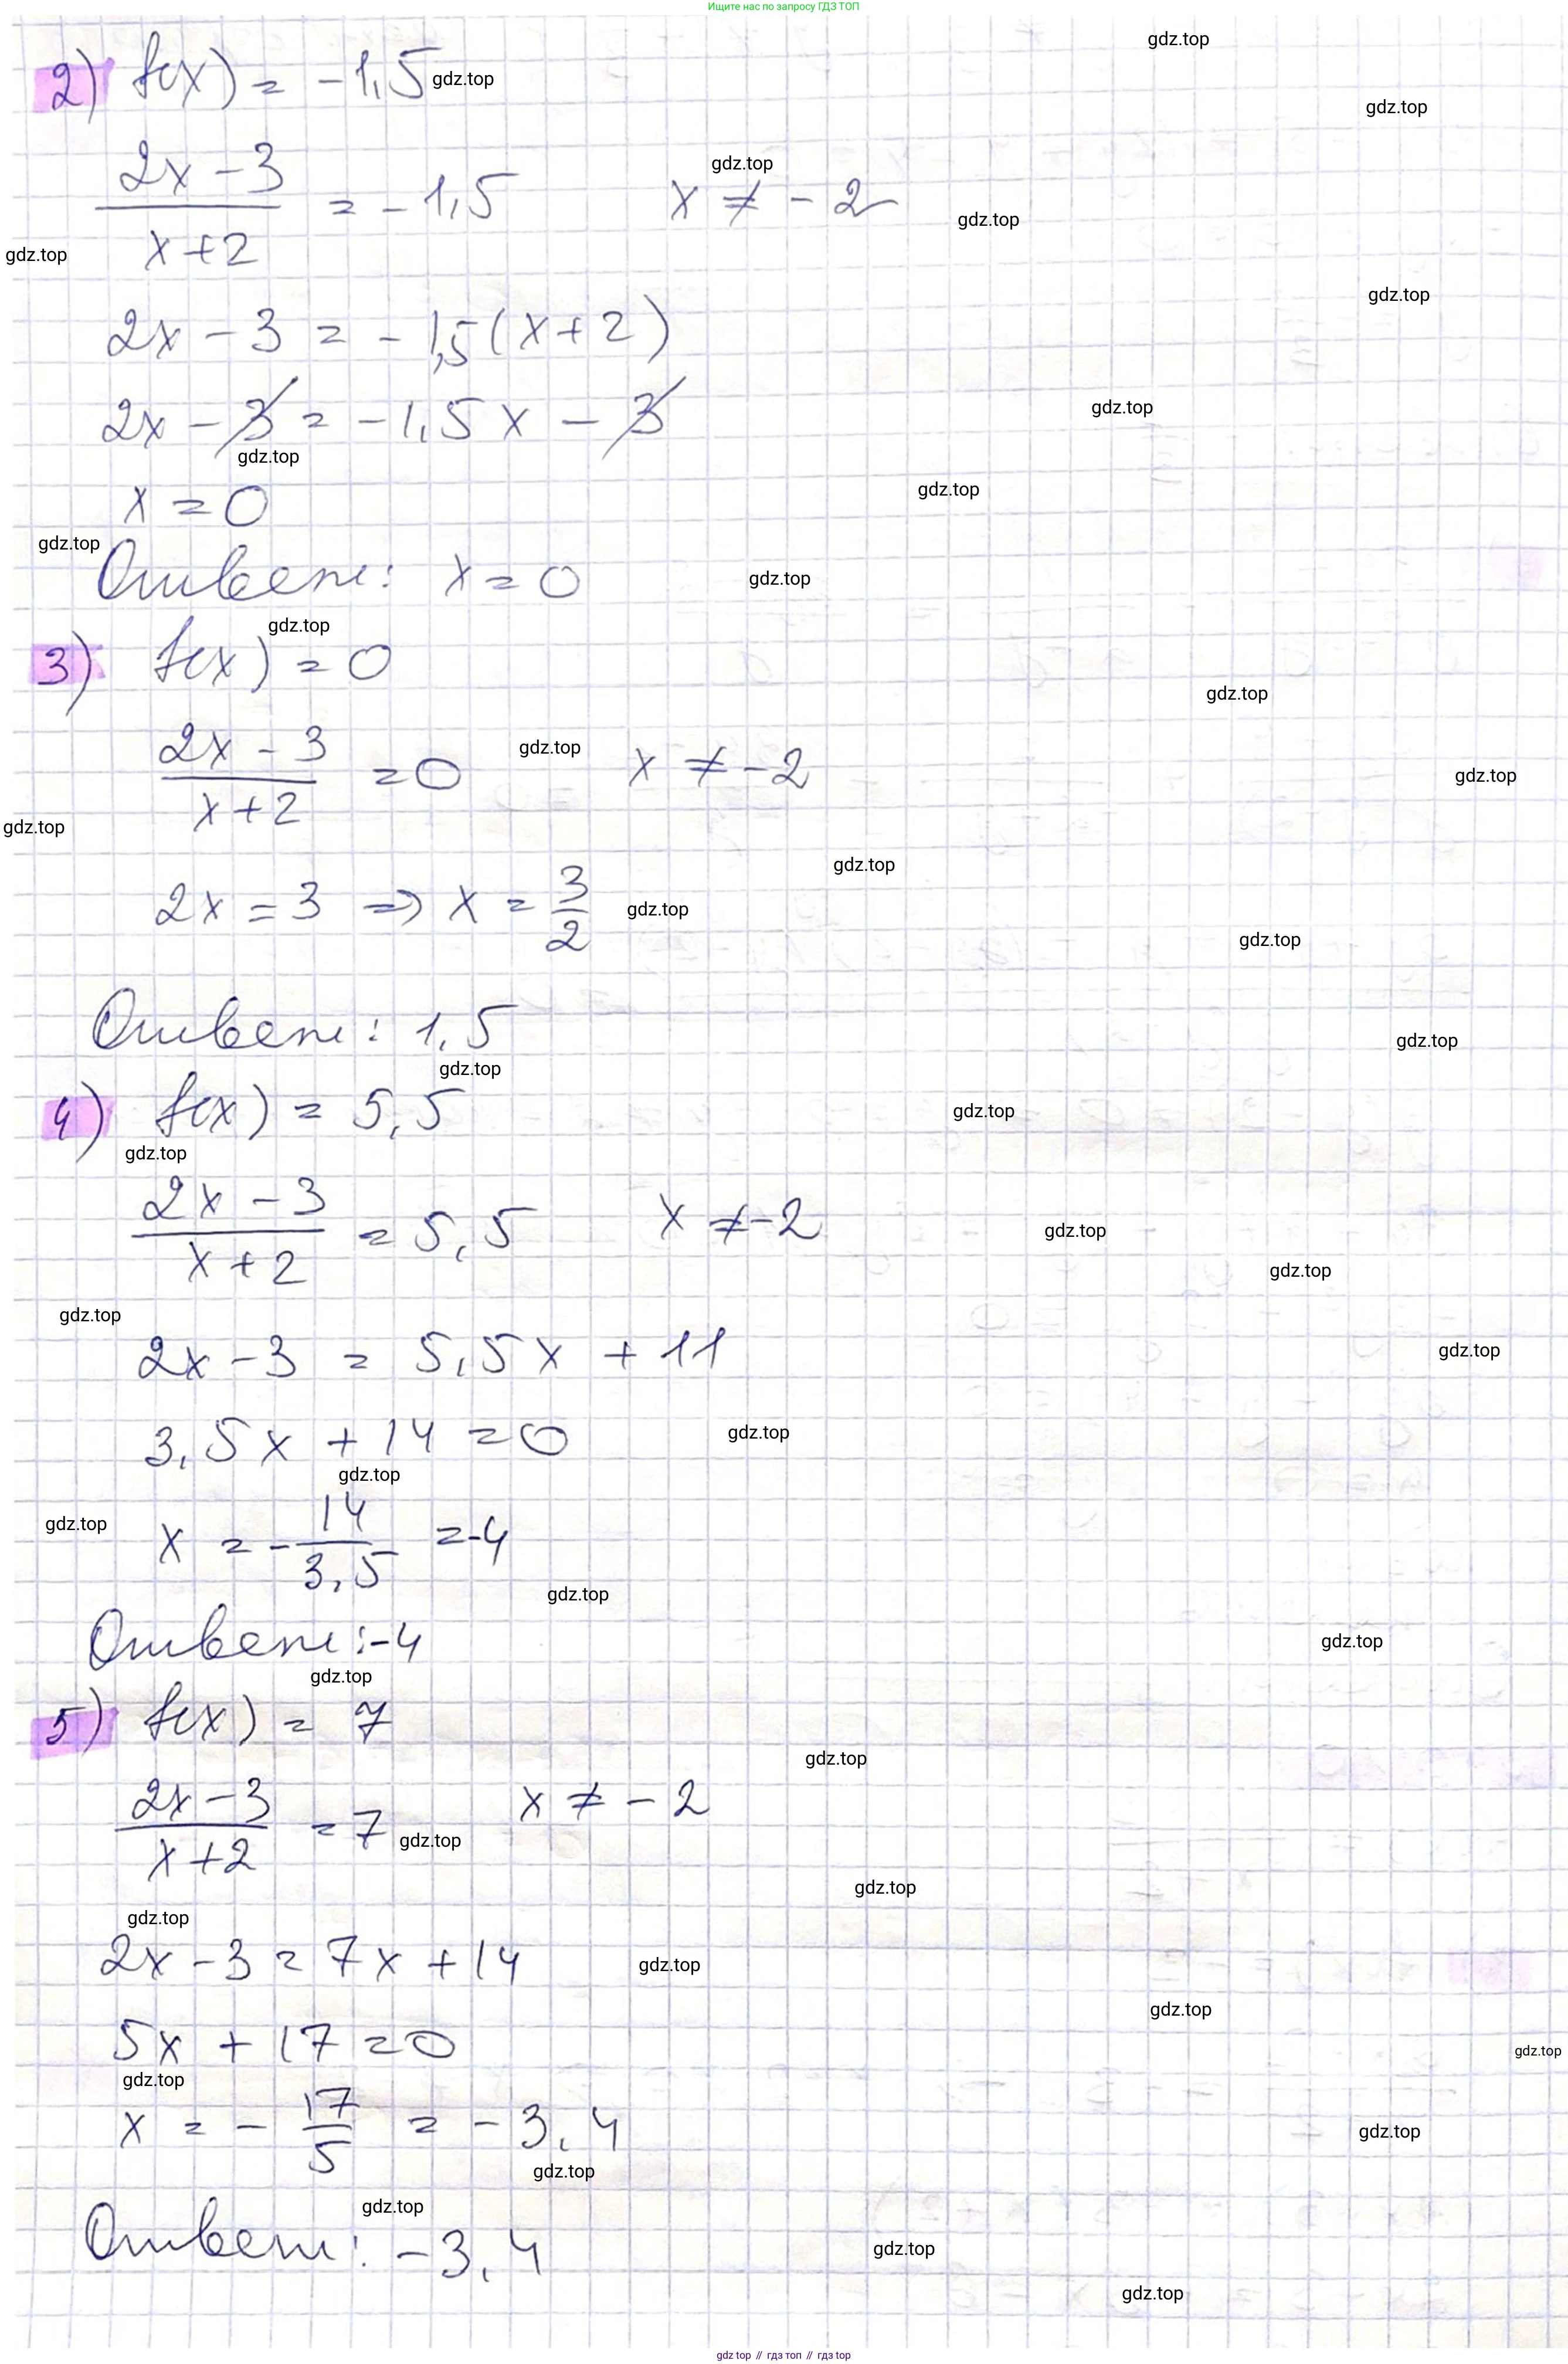 Ищите нас по запросу ГДЗ ТОП
gdz.top
2) f(x) = -1,5 gdz.top
gdz.top
2x - 3 / x + 2 = -1,5 x ≠ -2
gdz.top
gdz.top
gdz.top
gdz.top
2x - 3 = -1,5(x+2)
2x - 3 = -1,5x - 3
gdz.top
gdz.top
gdz.top
x = 0
gdz.top
Ответ: x = 0
gdz.top
gdz.top
3) f(x) = 0
gdz.top
2x - 3 / x + 2 = 0 x ≠ -2
gdz.top
gdz.top
gdz.top
gdz.top
2x = 3 => x = 3/2
gdz.top
gdz.top
Ответ: 1,5
gdz.top
gdz.top
4) f(x) = 5,5
gdz.top
gdz.top
2x - 3 / x + 2 = 5,5 x ≠ -2
gdz.top
gdz.top
gdz.top
2x - 3 = 5,5x + 11
gdz.top
3,5x + 14 = 0
gdz.top
gdz.top
gdz.top
x = -14/3,5 = -4
gdz.top
Ответ: -4
gdz.top
gdz.top
5) f(x) = 7
gdz.top
2x - 3 / x + 2 = 7 x ≠ -2
gdz.top
gdz.top
gdz.top
2x - 3 = 7x + 14
gdz.top
gdz.top
5x + 17 = 0
gdz.top
gdz.top
x = -17/5 = -3,4
gdz.top
gdz.top
gdz.top
Ответ: -3,4
gdz.top
gdz.top
gdz top // гдз топ // гдз top